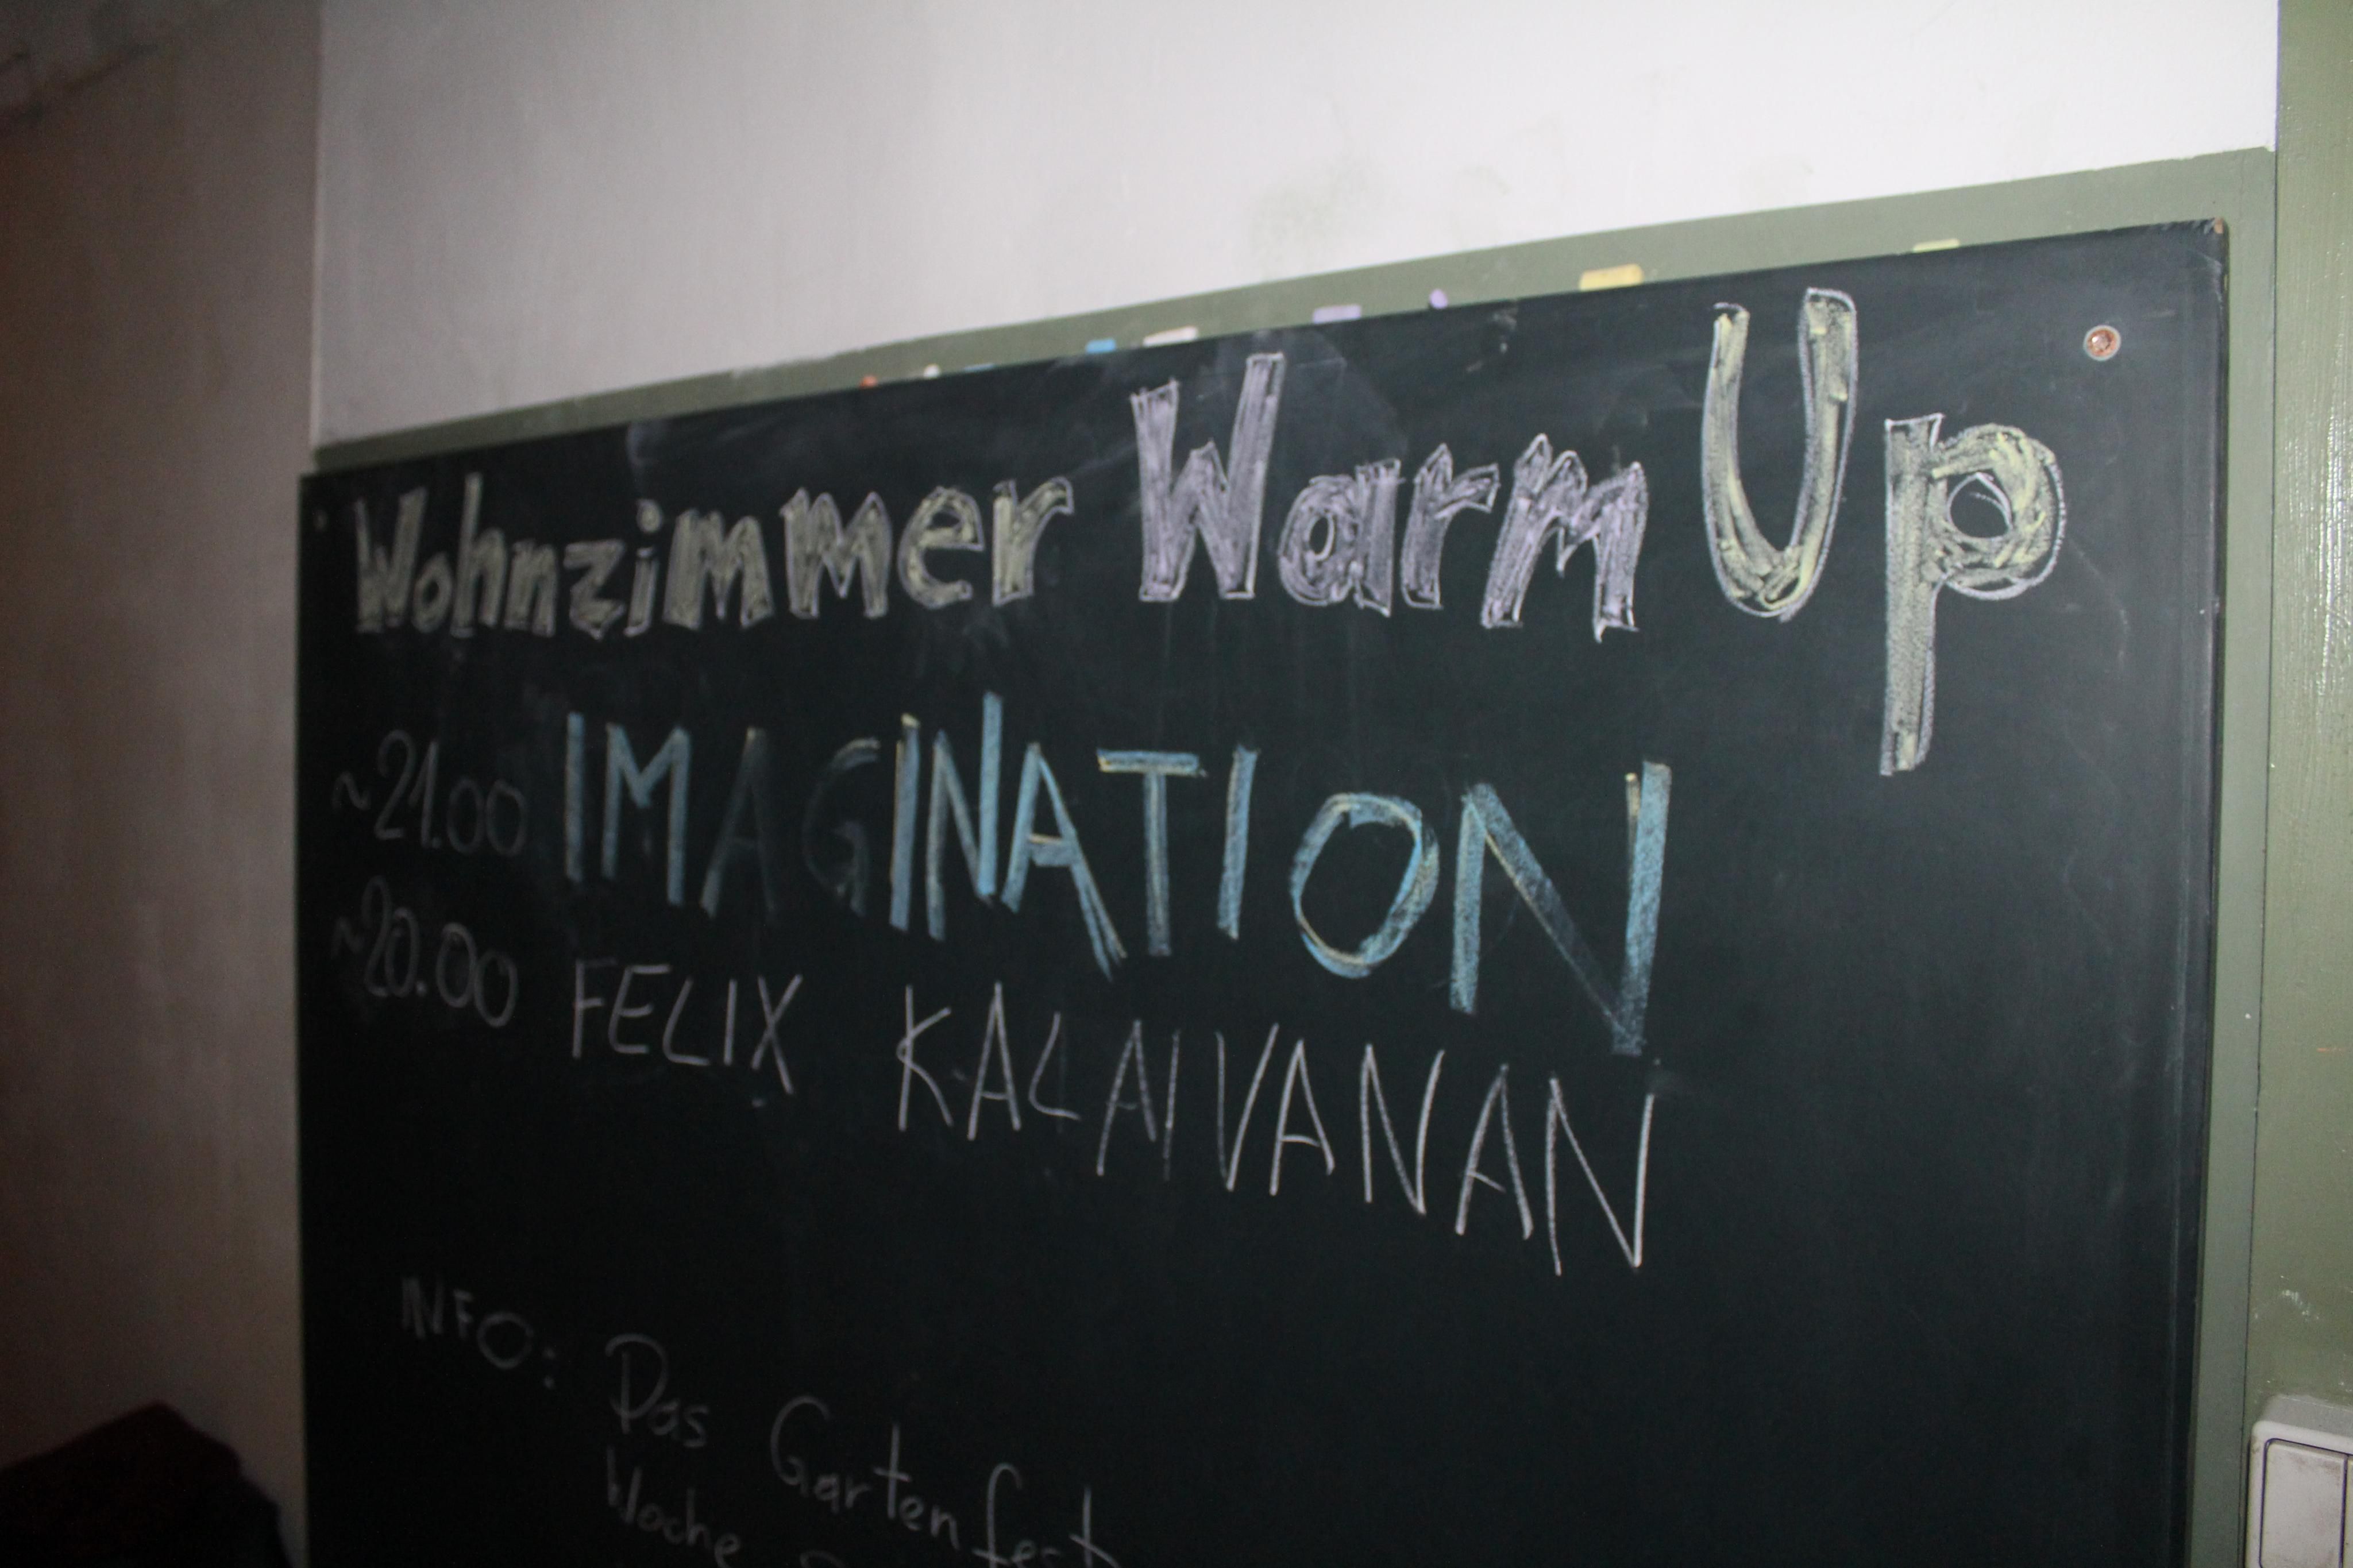 Wohnzimmer Warm Up
~21.00 IMAGINATION
~20.00 FELIX KALAIVANAN
INFO: Das Gartenfest
Woche